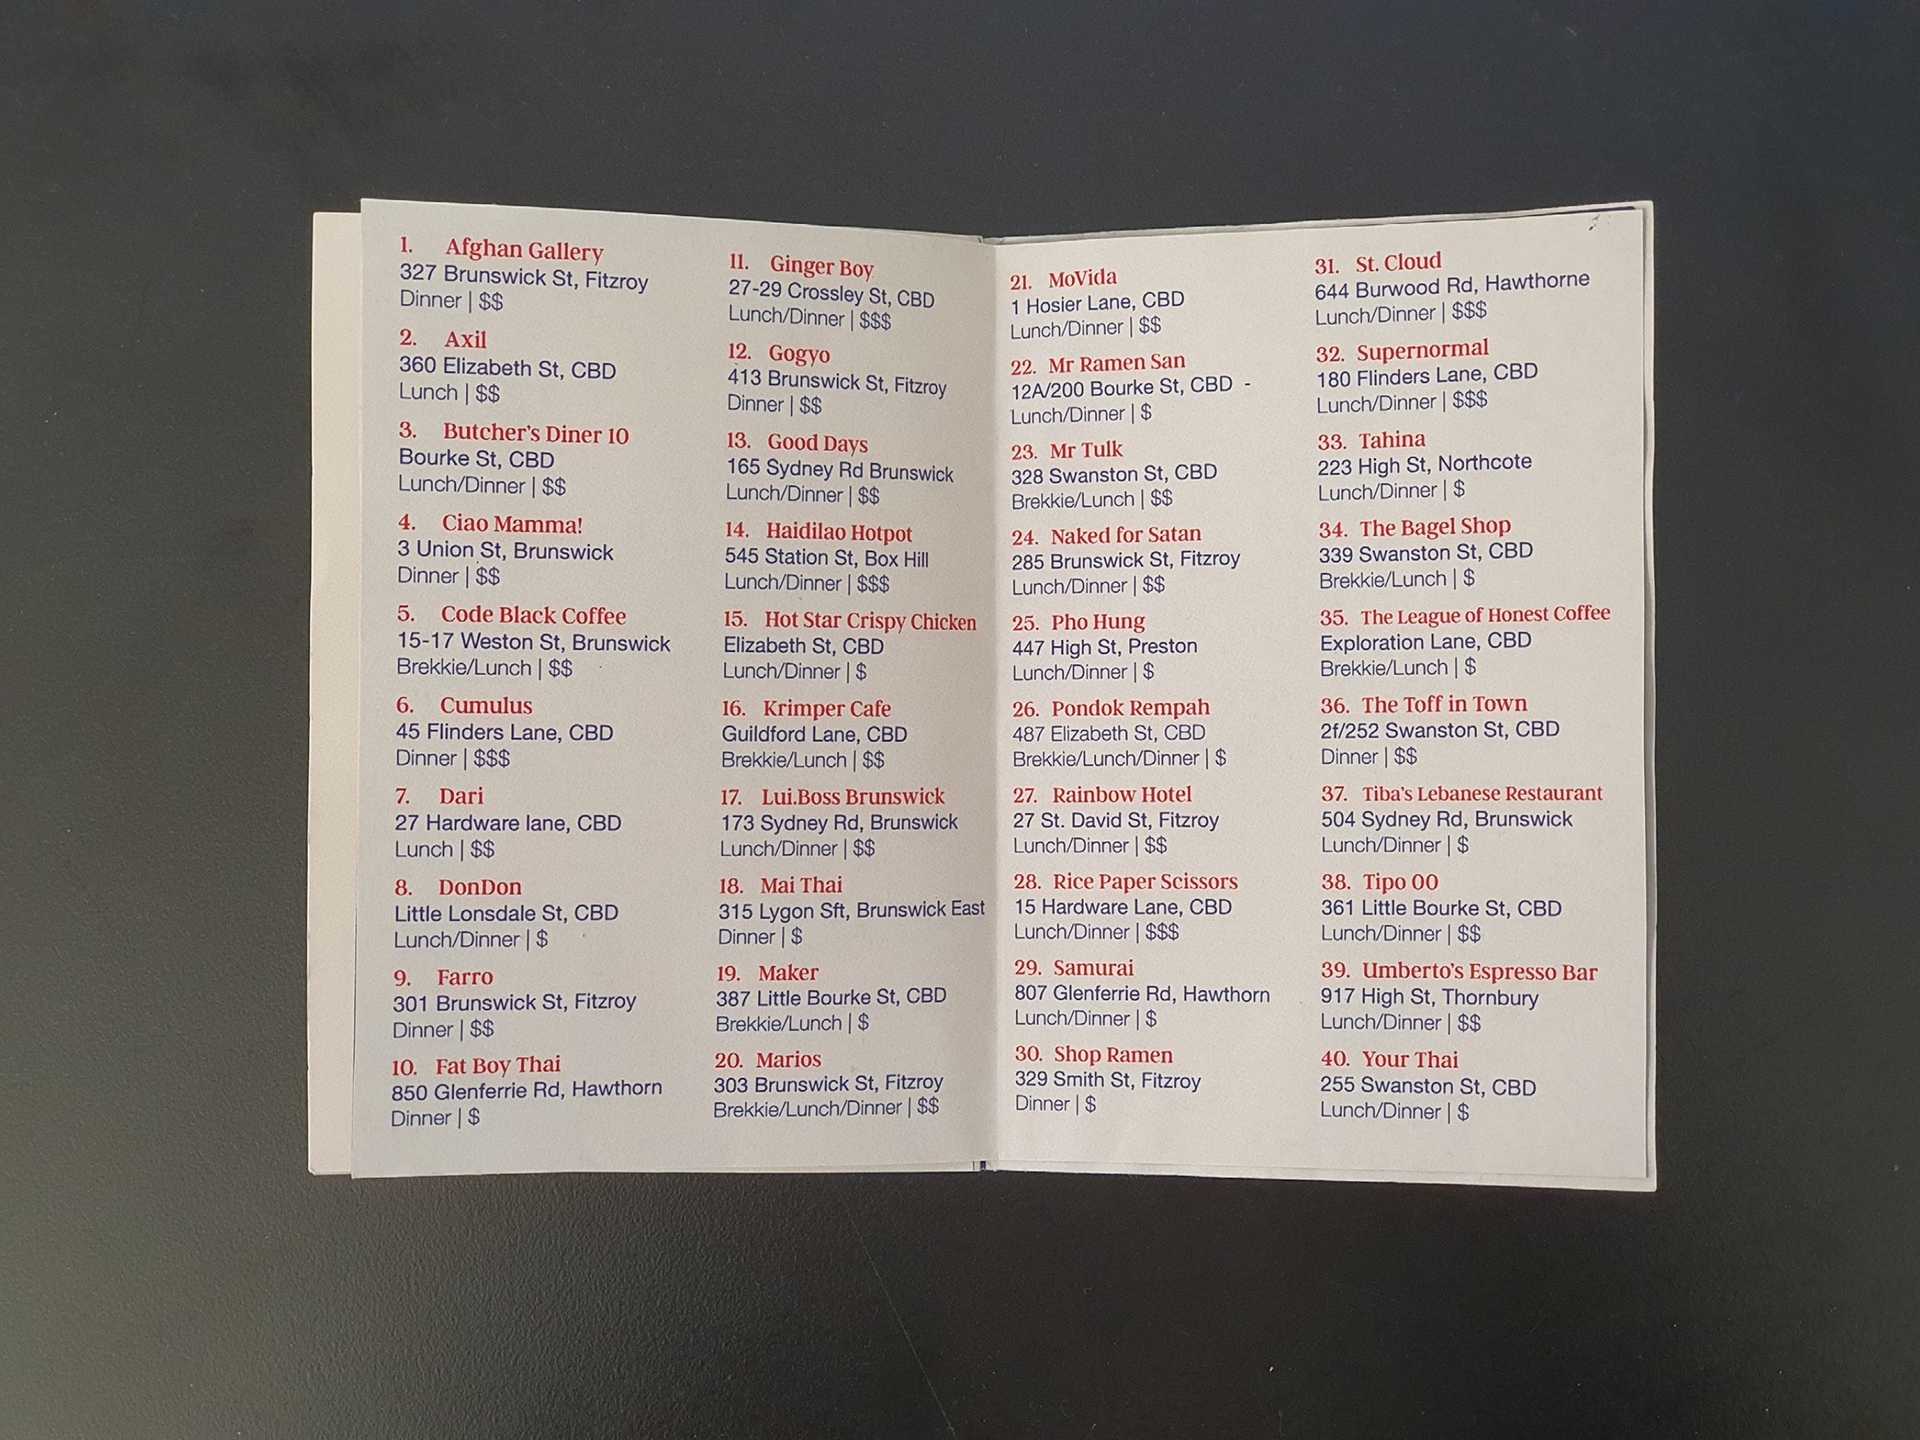 1. Afghan Gallery
327 Brunswick St, Fitzroy
Dinner | $$
2. Axil
360 Elizabeth St, CBD
Lunch | $$
3. Butcher's Diner 10
Bourke St, CBD
Lunch/Dinner | $$
4. Ciao Mamma!
3 Union St, Brunswick
Dinner | $$
5. Code Black Coffee
15-17 Weston St, Brunswick
Brekkie/Lunch | $$
6. Cumulus
45 Flinders Lane, CBD
Dinner | $$$
7. Dari
27 Hardware lane, CBD
Lunch | $$
8. DonDon
Little Lonsdale St, CBD
Lunch/Dinner | $
9. Farro
301 Brunswick St, Fitzroy
Dinner | $$
10. Fat Boy Thai
850 Glenferrie Rd, Hawthorn
Dinner | $
11. Ginger Boy
27-29 Crossley St, CBD
Lunch/Dinner | $$$
12. Gogyo
413 Brunswick St, Fitzroy
Dinner | $$
13. Good Days
165 Sydney Rd Brunswick
Lunch/Dinner | $$
14. Haidilao Hotpot
545 Station St, Box Hill
Lunch/Dinner | $$$
15. Hot Star Crispy Chicken
Elizabeth St, CBD
Lunch/Dinner | $
16. Krimper Cafe
Guildford Lane, CBD
Brekkie/Lunch | $$
17. Lui.Boss Brunswick
173 Sydney Rd, Brunswick
Lunch/Dinner | $$
18. Mai Thai
315 Lygon Sft, Brunswick East
Dinner | $
19. Maker
387 Little Bourke St, CBD
Brekkie/Lunch | $
20. Marios
303 Brunswick St, Fitzroy
Brekkie/Lunch/Dinner | $$
21. MoVida
1 Hosier Lane, CBD
Lunch/Dinner | $$
22. Mr Ramen San
12A/200 Bourke St, CBD -
Lunch/Dinner | $
23. Mr Tulk
328 Swanston St, CBD
Brekkie/Lunch | $$
24. Naked for Satan
285 Brunswick St, Fitzroy
Lunch/Dinner | $$
25. Pho Hung
447 High St, Preston
Lunch/Dinner | $
26. Pondok Rempah
487 Elizabeth St, CBD
Brekkie/Lunch/Dinner | $
27. Rainbow Hotel
27 St. David St, Fitzroy
Lunch/Dinner | $$
28. Rice Paper Scissors
15 Hardware Lane, CBD
Lunch/Dinner | $$$
29. Samurai
807 Glenferrie Rd, Hawthorn
Lunch/Dinner | $
30. Shop Ramen
329 Smith St, Fitzroy
Dinner | $
31. St. Cloud
644 Burwood Rd, Hawthorne
Lunch/Dinner | $$$
32. Supernormal
180 Flinders Lane, CBD
Lunch/Dinner | $$$
33. Tahina
223 High St, Northcote
Lunch/Dinner | $
34. The Bagel Shop
339 Swanston St, CBD
Brekkie/Lunch | $
35. The League of Honest Coffee
Exploration Lane, CBD
Brekkie/Lunch | $
36. The Toff in Town
2f/252 Swanston St, CBD
Dinner | $$
37. Tiba's Lebanese Restaurant
504 Sydney Rd, Brunswick
Lunch/Dinner | $
38. Tipo 00
361 Little Bourke St, CBD
Lunch/Dinner | $$
39. Umberto's Espresso Bar
917 High St, Thornbury
Lunch/Dinner | $$
40. Your Thai
255 Swanston St, CBD
Lunch/Dinner | $